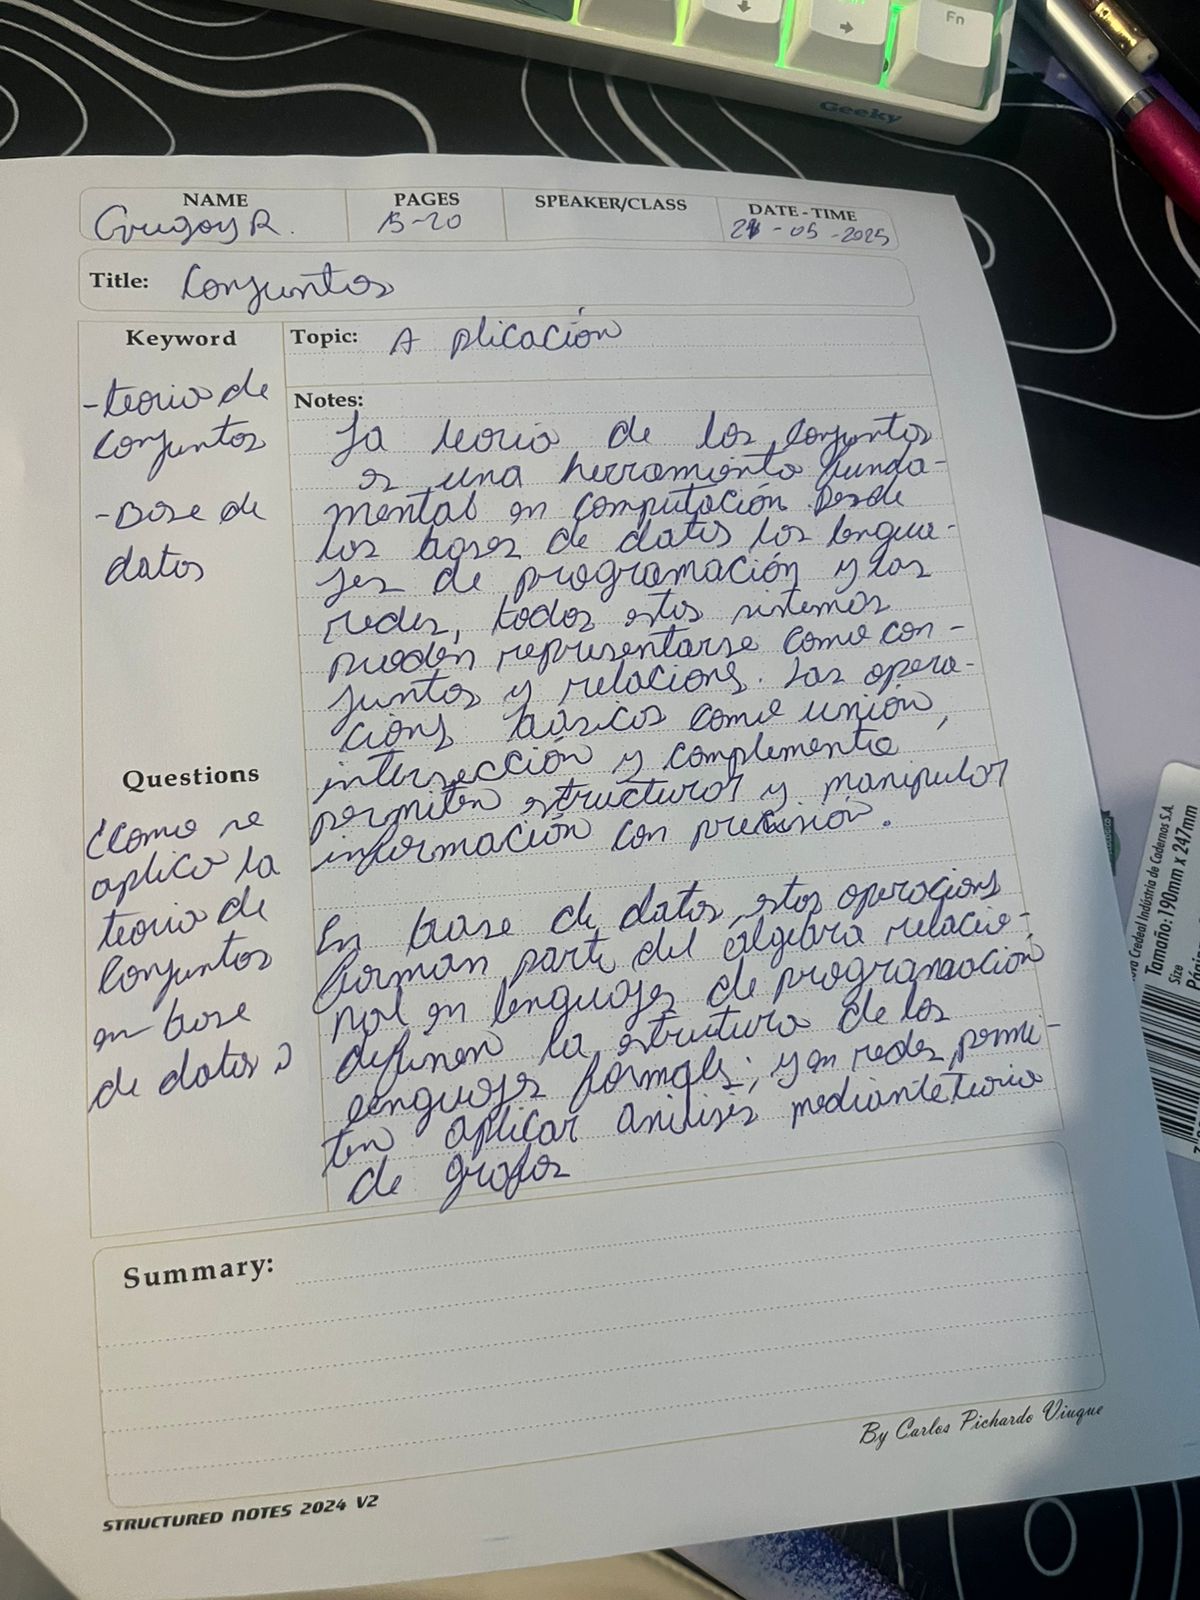 Fn
Geeky
NAME
PAGES
SPEAKER/CLASS
DATE-TIME
Gregory R.
15-20
21-05-2025
Title: Conjuntos
Keyword
- teoria de
conjuntos
- Base de
datos
Questions
¿Como se
aplica la
teoria de
Conjuntos
en base
de datos?
Topic: Aplicación
Notes:
La teoria de los conjuntos
es una herramienta funda-
mental en computación. Desde
las bases de datos los lengua-
jes de programación y las
redes, todos estos sistemas
pueden representarse como con-
juntos y relacions. Las opera-
cions basicas como unión,
intersección y complemento,
permiten estructurar y manipular
información con precisión.
En base de datos, estas operacions
forman parte del álgebra relacio-
nal en lenguajes de programación
definen la estructura de los
lenguajes formals; y en redes, permi-
ten aplicar analisis mediante teoria
de grafos
Summary:
By Carlos Pichardo Viuque
STRUCTURED NOTES 2024 V2
Credeal Indústria de Cadernos S.A.
Tamaño: 190mm x 247mm
Size